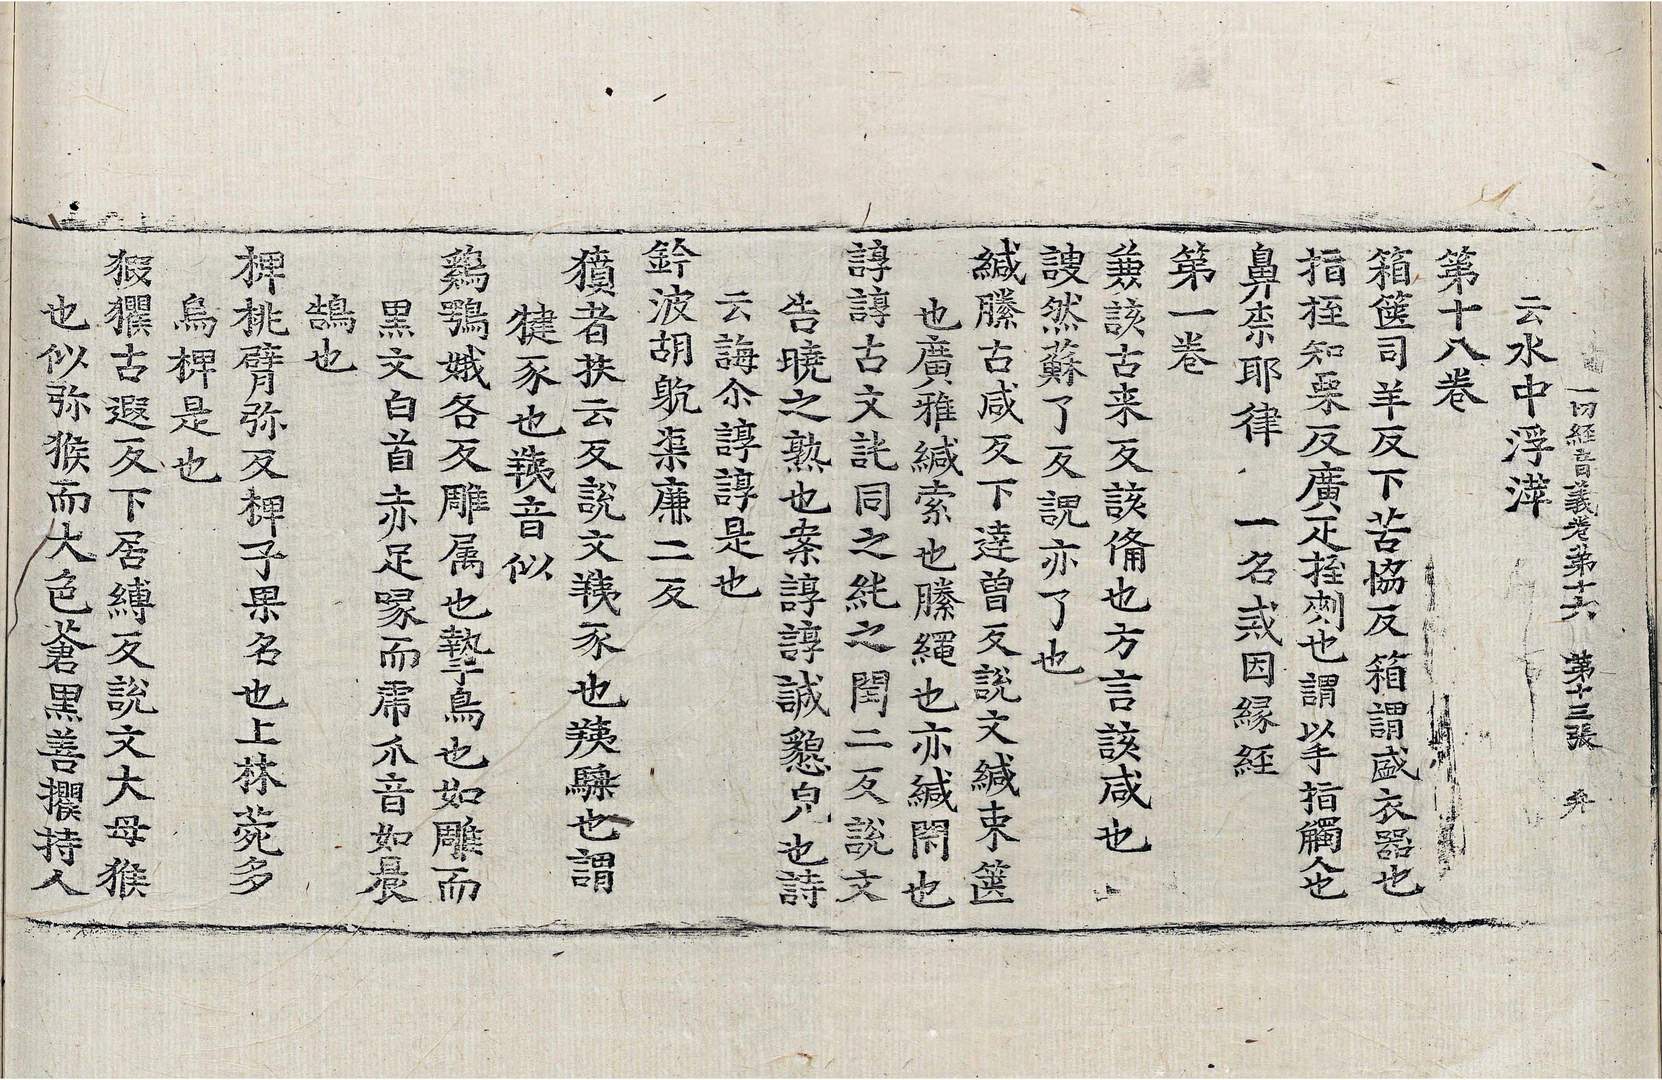 一切経音義卷第十六　第十三張　弁
云水中浮滓
第十八卷
箱篋司羊反下苦協反箱謂盛衣器也
指挃知栗反廣疋挃刺也謂以手指觸人也
鼻柰耶律　一名戒因縁経
第一卷
兼該古来反該俻也方言該咸也
謏然蘇了反謏亦了也
緘縢古咸反下達曽反說文緘束篋
也廣雅緘索也縢繩也亦緘閇也
諄諄古文訰同之純之閏二反說文
告曉之熟也案諄諄誠懇皃也詩
云誨尒諄諄是也
鈐波胡䫻渠廉二反
獖者扶云反說文羠豕也羠騬也謂
犍豕也羠音似
鷄鶚娥各反雕属也摯鳥也如雕而
黑文白首赤足喙而虎爪音如晨
鵠也
椑桃臂弥反椑子果名也上林菀多
烏椑是也
猳玃古遐反下居縛反說文大母猴
也似弥猴而大色蒼黑善攫持人